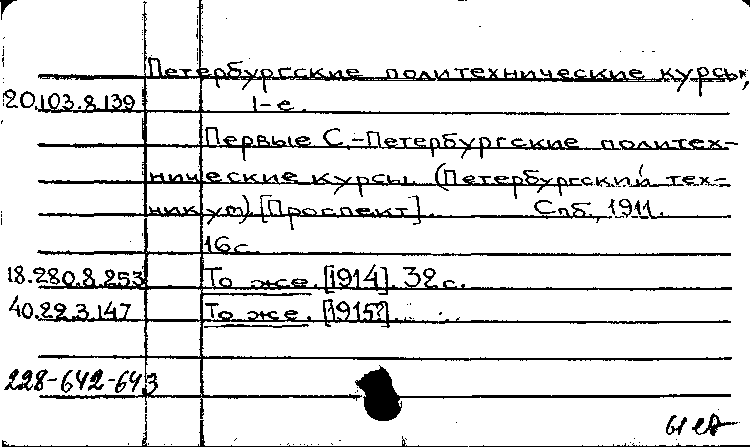 Петербургские политехнические курсы,
20.103.8.139 1-е.
Первые С.-Петербургские политех-
нические курсы. (Петербургский тех-
никум). [Проспект]. Спб., 1911.
16 с.
18.280.8.253 То же. [1914]. 32 с.
40.22.3.147 То же. [1915?].
228-642-643